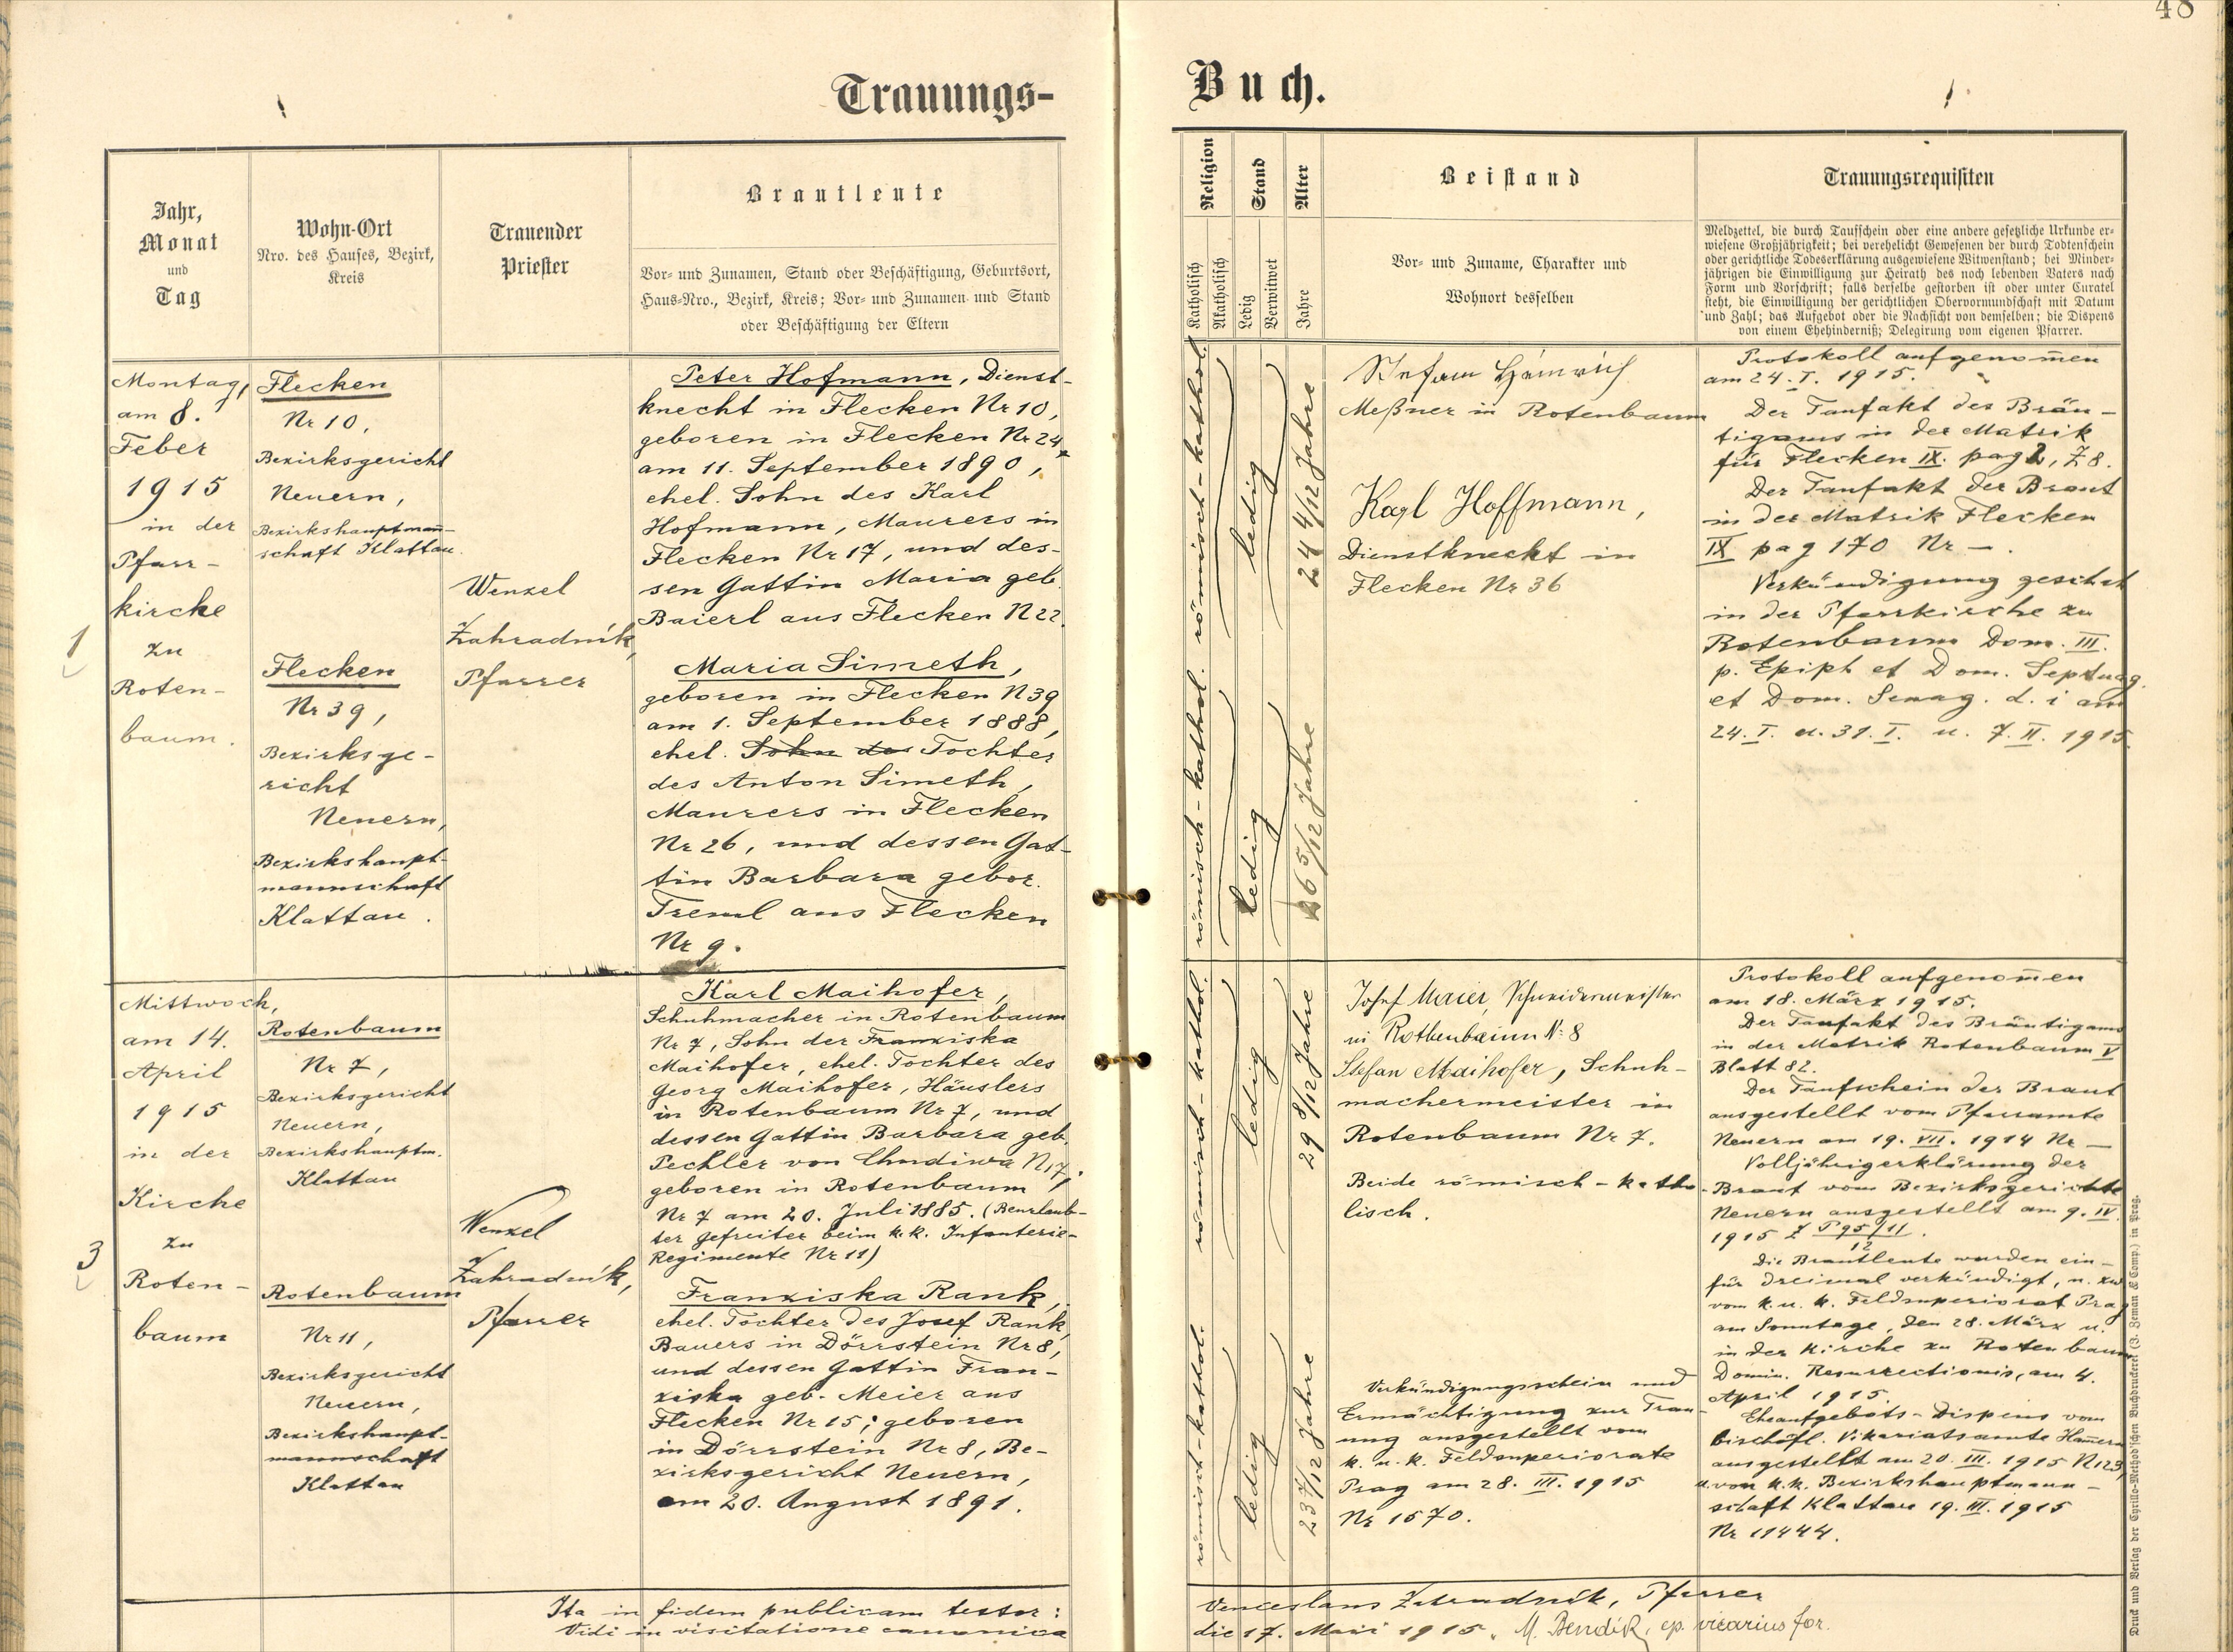 48
Trauungs-
Buch.
Jahr,
Monat
und
Tag
Wohn-Ort
Nro. des Hauses, Bezirk,
Kreis
Trauender
Priester
Brautleute
Vor- und Zunamen, Stand oder Beschäftigung, Geburtsort,
Haus-Nro., Bezirk, Kreis; Vor- und Zunamen und Stand
oder Beschäftigung der Eltern
Religion
Katholisch
Akatholisch
Stand
Ledig
Verwitwet
Alter
Jahre
Beistand
Vor- und Zuname, Charakter und
Wohnort desselben
Trauungsrequisiten
Meldzettel, die durch Taufschein oder eine andere gesetzliche Urkunde er-
wiesene Großjährigkeit; bei verehelicht Gewesenen der durch Todtenschein
oder gerichtliche Todeserklärung ausgewiesene Witwenstand; bei Minder-
jährigen die Einwilligung zur Heirath des noch lebenden Vaters nach
Form und Vorschrift; falls derselbe gestorben ist oder unter Curatel
steht, die Einwilligung der gerichtlichen Obervormundschaft mit Datum
und Zahl; das Aufgebot oder die Nachsicht von demselben; die Dispens
von einem Ehehinderniß; Delegirung vom eigenen Pfarrer.
1
Montag,
am 8.
Feber
1915
in der
Pfarr-
kirche
zu
Roten-
baum.
Flecken
Nr 10,
Bezirksgericht
Neuern,
Bezirkshauptman̄-
schaft Klattau.
Flecken
Nr 39,
Bezirksge-
richt
Neuern,
Bezirkshaupt-
mannschaft
Klattau.
Wenzel
Zahradník,
Pfarrer
Peter Hofmann, Dienst-
knecht in Flecken Nr 10,
geboren in Flecken Nr 24,
am 11. September 1890,
ehel. Sohn des Karl
Hofmann, Maurers in
Flecken Nr 17, und des-
sen Gattin Maria geb.
Baierl aus Flecken N 22.
Maria Simeth,
geboren in Flecken N 39
am 1. September 1888,
ehel. Sohn des Tochter
des Anton Simeth,
Maurers in Flecken
Nr 26, und dessen Gat-
tin Barbara gebor.
Treml aus Flecken
Nr 9.
römisch-kathol.
ledig
24 4/12 Jahre
römisch-kathol.
ledig
26 5/12 Jahre
Stefan Heinrich
Meßner in Rotenbaum
Karl Hoffmann,
Dienstknecht in
Flecken Nr 36
Protokoll aufgenom̄en
am 24. I. 1915.
Der Taufakt des Bräu-
tigams in der Matrik
für Flecken IX. pag 2, Z 8.
Der Taufakt der Braut
in der Matrik Flecken
IX pag 170 Nr —.
Verkündigung geschah
in der Pfarrkirche zu
Rotenbaum Dom. III.
p. Epiph et Dom. Septuag.
et Dom. Sexag. d. i am
24. I. u. 31. I. u. 7. II. 1915.
3
Mittwoch,
am 14.
April
1915
in der
Kirche
zu
Roten-
baum
Rotenbaum
Nr 7,
Bezirksgericht
Neuern,
Bezirkshauptm.
Klattau
Rotenbaum
Nr 11,
Bezirksgericht
Neuern,
Bezirkshaupt-
mannschaft
Klattau
Wenzel
Zahradník,
Pfarrer
Karl Maihofer,
Schuhmacher in Rotenbaum
Nr 7, Sohn der Franziska
Maihofer, ehel. Tochter des
Georg Maihofer, Häuslers
in Rotenbaum Nr 7, und
dessen Gattin Barbara geb.
Pechler von Chudiwa N 17,
geboren in Rotenbaum
Nr 7 am 20. Juli 1885. (Beurlaub-
ter Gefreiter beim k.k. Infanterie-
Regimente Nr 11)
Franziska Rank,
ehel. Tochter des Josef Rank,
Bauers in Dörrstein Nr 8,
und dessen Gattin Fran-
ziska geb. Meier aus
Flecken Nr 15; geboren
in Dörrstein Nr 8, Be-
zirksgericht Neuern,
am 20. August 1891.
römisch-kathol.
ledig
29 8/12 Jahre
römisch-kathol.
ledig
23 7/12 Jahre
Josef Maier, Schneidermeister
in Rothenbaum N: 8
Stefan Maihofer, Schuh-
machermeister in
Rotenbaum Nr 7.
Beide römisch-katho-
lisch.
Verkündigungsschein und
Ermächtigung zur Trau-
ung ausgestellt vom
k. u. k. Feldsuperiorate
Prag am 28. III. 1915
Nr 1570.
Protokoll aufgenom̄en
am 18. März 1915.
Der Taufakt des Bräutigams
in der Matrik Rotenbaum V
Blatt 82.
Der Taufschein der Braut
ausgestellt vom Pfarramte
Neuern am 19. VII. 1914 Nr —
Volljährigerklärung der
Braut vom Bezirksgerichte
Neuern ausgestellt am 9. IV.
1915 Z P 95/11.
12
Die Brautleute wurden ein-
für dreimal verkündigt, u. zw.
vom k. u. k. Feldsuperiorat Prag
am Sonntage, den 28. März u.
in der Kirche zu Rotenbaum
Domin. Resurrectionis, am 4.
April 1915.
Eheaufgebots-Dispens vom
bischöfl. Vikariatsamte Ham̄ern
ausgestellt am 20. III. 1915 N 123,
u. von k.k. Bezirkshauptmann-
schaft Klattau 19. III. 1915
Nr 11444.
Ita in fidem publicam testor: Venceslaus Zahradník, Pfarrer
Vidi in visitatione canonica die 17. Maii 1915. M. Bendík, ep. vicarius for.
Druck und Verlag der Cyrillo-Method'schen Buchdruckerei (J. Zeman & Comp.) in Prag.